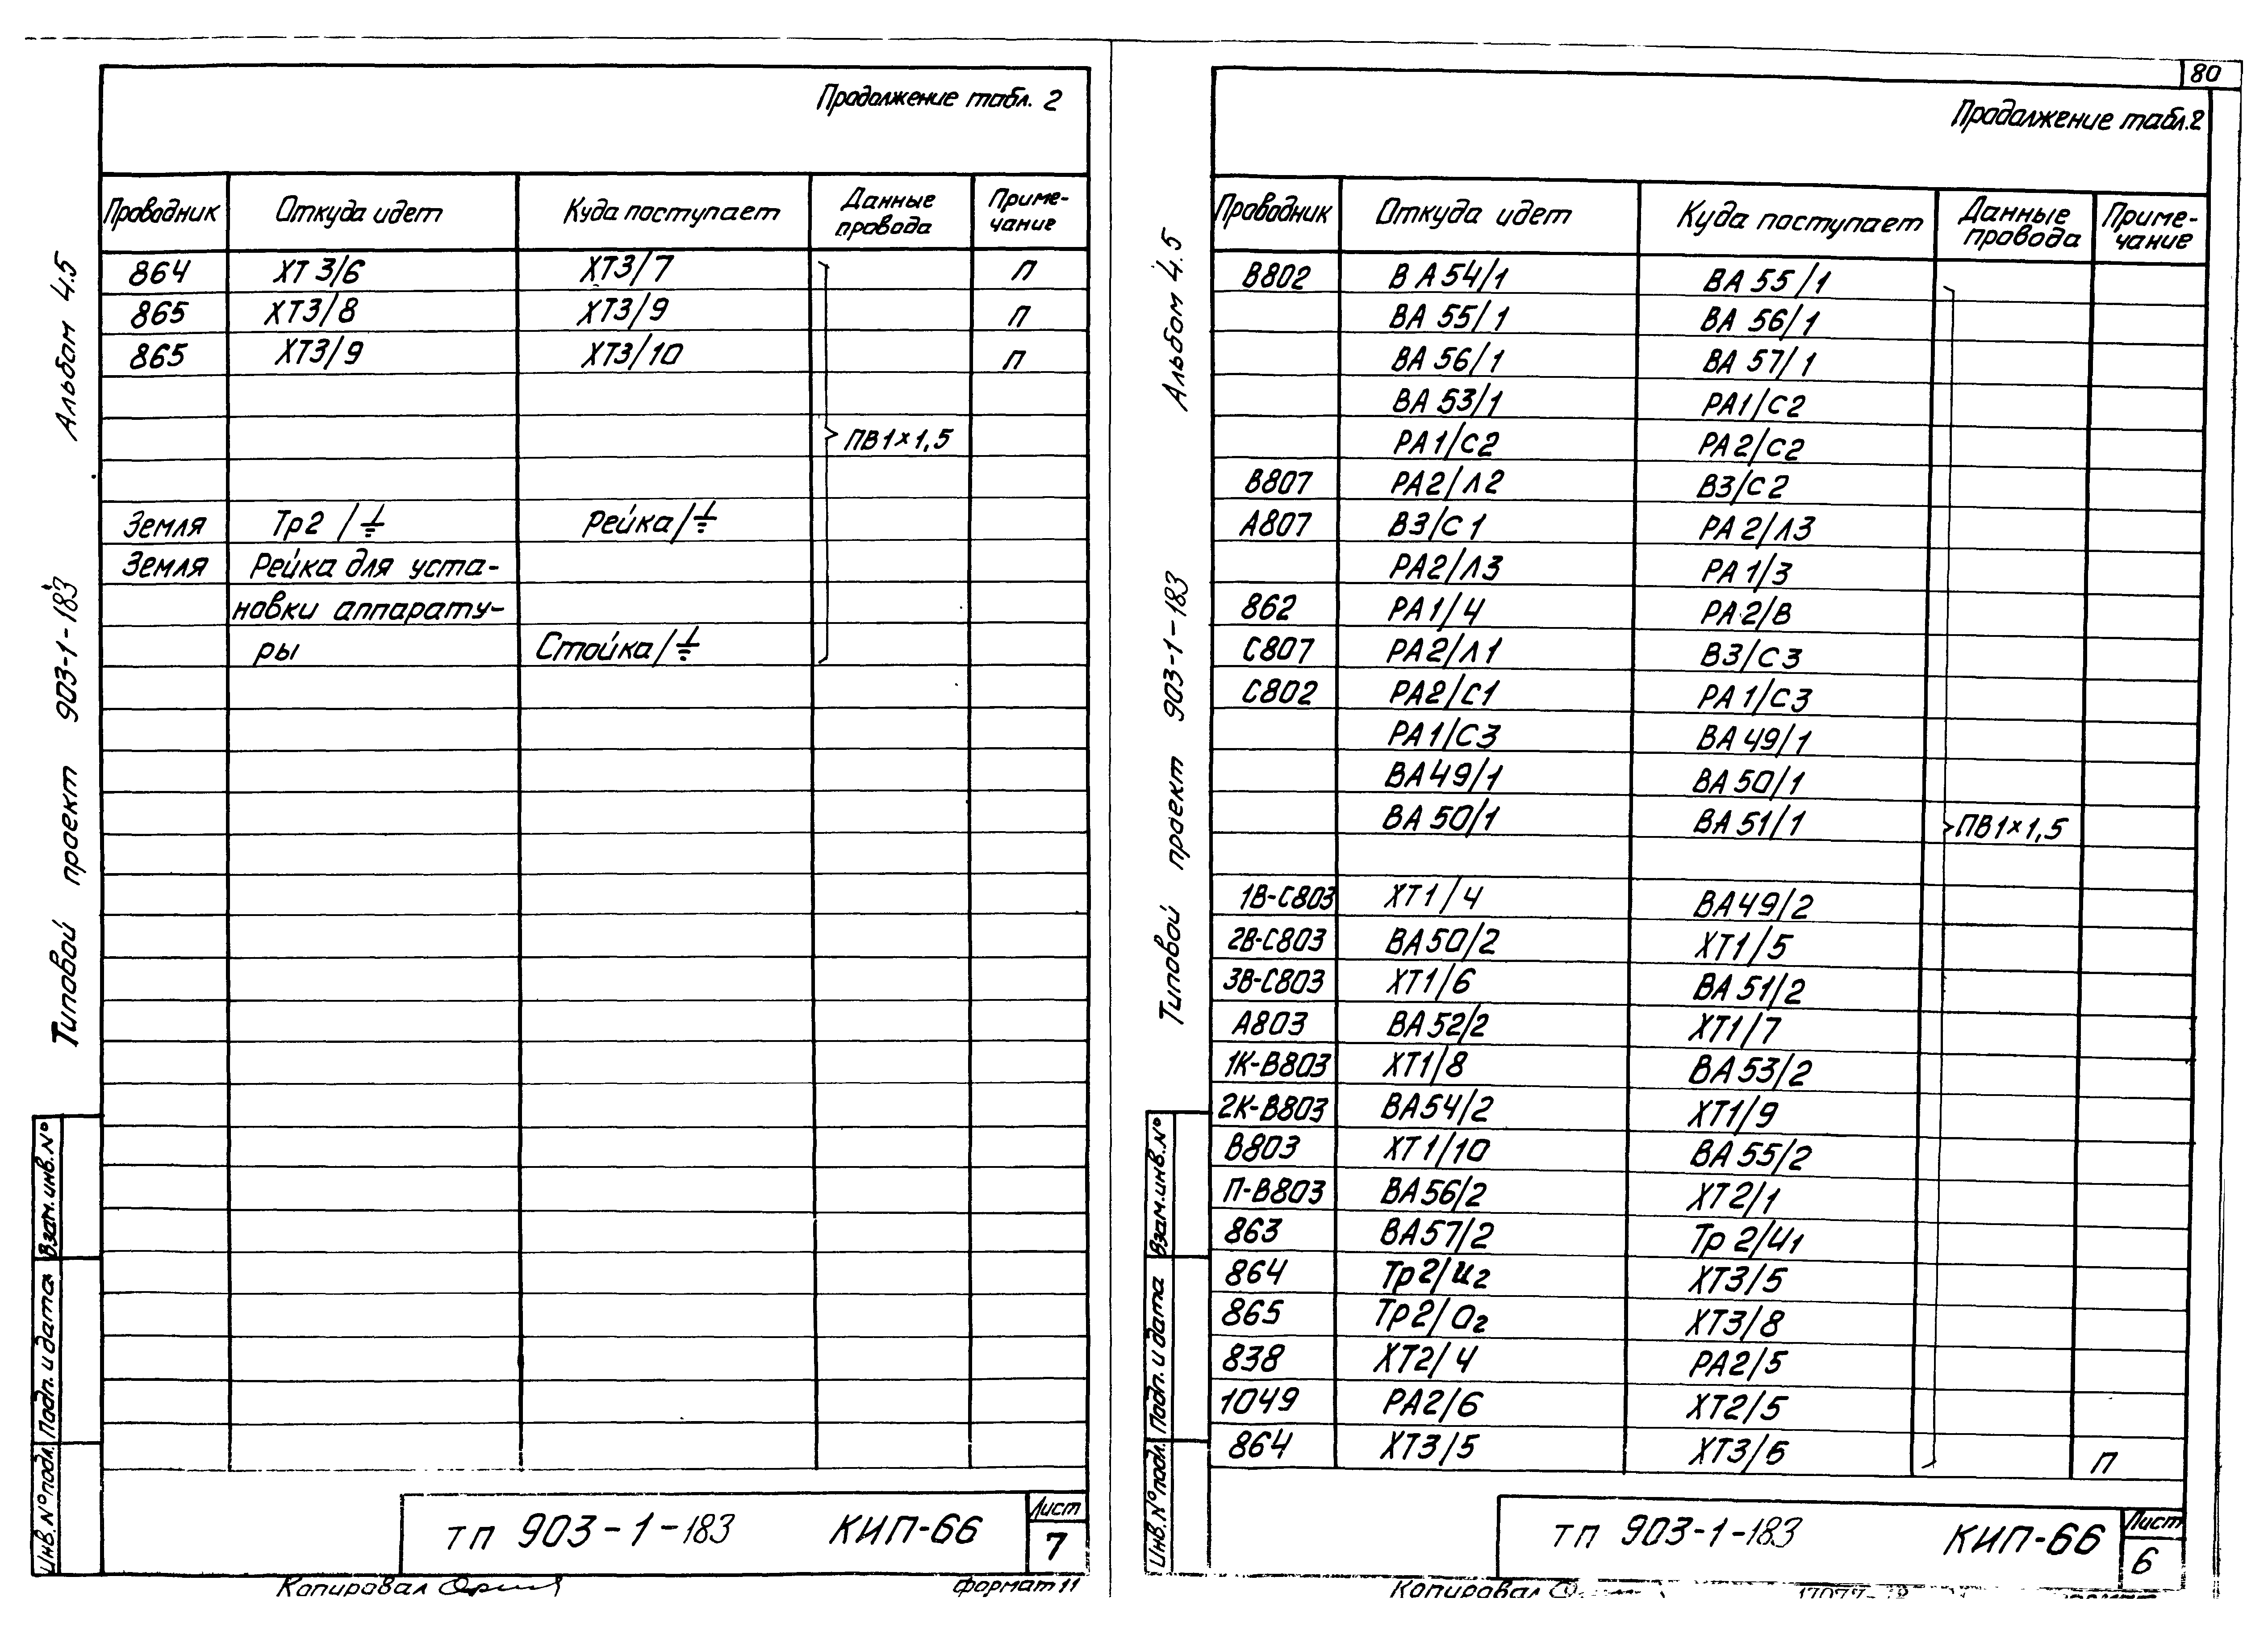 Продолжение табл. 2
Проводник Откуда идет Куда поступает Данные провода Приме-чание
864 ХТ3/6 ХТ3/7 П
865 ХТ3/8 ХТ3/9 П
865 ХТ3/9 ХТ3/10 П
ПВ1×1,5
Земля Тр2 /⏚ Рейка/⏚
Земля Рейка для уста-
новки аппарату-
ры Стойка/⏚
Альбом 4.5
Типовой проект 903-1-183
Взам.инв.№
Подп. и дата
Инв.№подл.
ТП 903-1-183 КИП-66
Лист
7
Копировал
Формат 11
80
Продолжение табл.2
Проводник Откуда идет Куда поступает Данные провода Приме-чание
В802 ВА54/1 ВА55/1
ВА55/1 ВА56/1
ВА56/1 ВА57/1
ВА53/1 РА1/С2
РА1/С2 РА2/С2
В807 РА2/Л2 В3/С2
А807 В3/С1 РА2/Л3
РА2/Л3 РА1/3
862 РА1/4 РА2/В
С807 РА2/Л1 В3/С3
С802 РА2/С1 РА1/С3
РА1/С3 ВА49/1
ВА49/1 ВА50/1
ВА50/1 ВА51/1
ПВ1×1,5
1В-С803 ХТ1/4 ВА49/2
2В-С803 ВА50/2 ХТ1/5
3В-С803 ХТ1/6 ВА51/2
А803 ВА52/2 ХТ1/7
1К-В803 ХТ1/8 ВА53/2
2К-В803 ВА54/2 ХТ1/9
В803 ХТ1/10 ВА55/2
П-В803 ВА56/2 ХТ2/1
863 ВА57/2 Тр2/И1
864 Тр2/И2 ХТ3/5
865 Тр2/О2 ХТ3/8
838 ХТ2/4 РА2/5
1049 РА2/6 ХТ2/5
864 ХТ3/5 ХТ3/6 П
Альбом 4.5
Типовой проект 903-1-183
Взам.инв.№
Подп. и дата
Инв.№подл.
ТП 903-1-183 КИП-66
Лист
6
Копировал